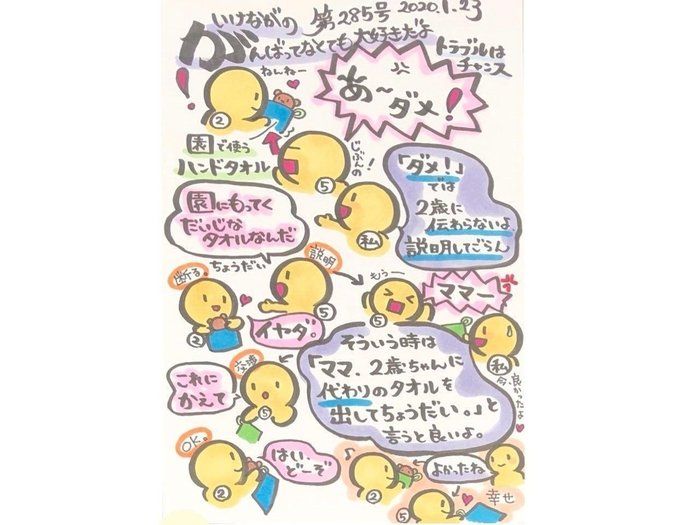 いけながの 第285号 2020.1.23
がんばってなとても大好きだよ
トラブルは
チャンス
ねんねー
!
②
あ〜ダメ!
園で使う
ハンドタオル
じぶんの!
⑤
「ダメ!」
では
2歳に
伝わらないよ
説明してごらん
私
園にもってく
だいじな
タオルなんだ
断る。
ちょうだい
説明
⑤
もうー
⑤
ママー
イヤダ。
②
私
今、良かったよ
そういう時は
「ママ、2歳ちゃんに
代わりのタオルを
出してちょうだい。」と
言うと良いよ。
交渉
これに
かえて
⑤
OK。
②
はい、
どーぞ
②
よかったね
⑤
幸せ